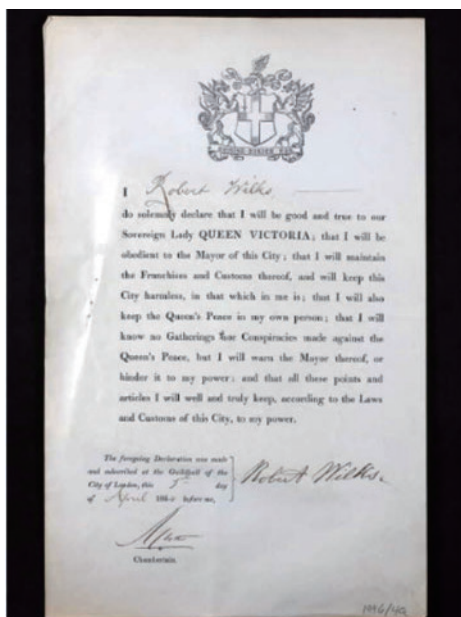 I Robert Wilks
do solemnly declare that I will be good and true to our
Sovereign Lady QUEEN VICTORIA; that I will be
obedient to the Mayor of this City; that I will maintain
the Franchises and Customs thereof, and will keep this
City harmless, in that which in me is; that I will also
keep the Queen's Peace in my own person; that I will
know no Gatherings nor Conspiracies made against the
Queen's Peace, but I will warn the Mayor thereof, or
hinder it to my power; and that all these points and
articles I will well and truly keep, according to the Laws
and Customs of this City, to my power.
The foregoing Declaration was made
and subscribed at the Guildhall of the
City of London, this 5 day
of April before me,
Robert Wilks.
Chamberlain.